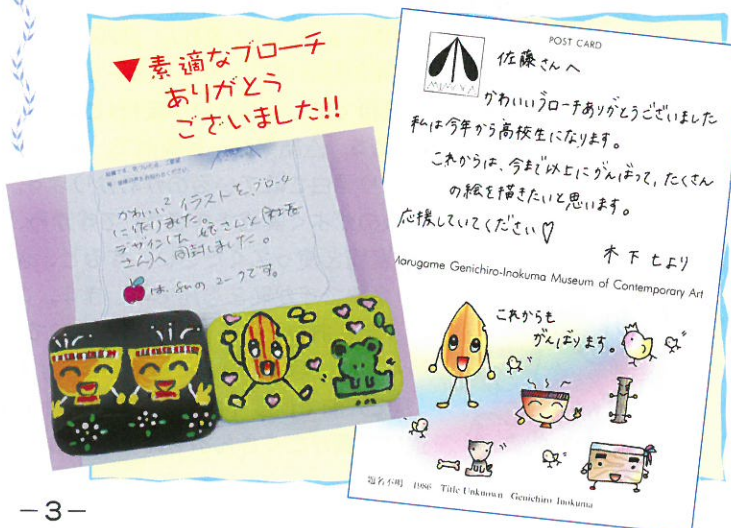 ▼素適なブローチ
ありがとう
ございました!!
かわいい² イラストを、ブローチ
に作りました。
デザインした 娘さんと(社長
さん)へ 同封しました。
は、Suの マークです。
POST CARD
MIMOCA
佐藤さんへ
かわいいブローチありがとうございました
私は今年から高校生になります。
これからは、今まで以上にがんばって、たくさん
の絵を描きたいと思います。
応援していてください♡
木下 七より
Marugame Genichiro-Inokuma Museum of Contemporary Art
これからも
がんばります。
題名不明 1986 Title Unknown Genichiro Inokuma
-3-